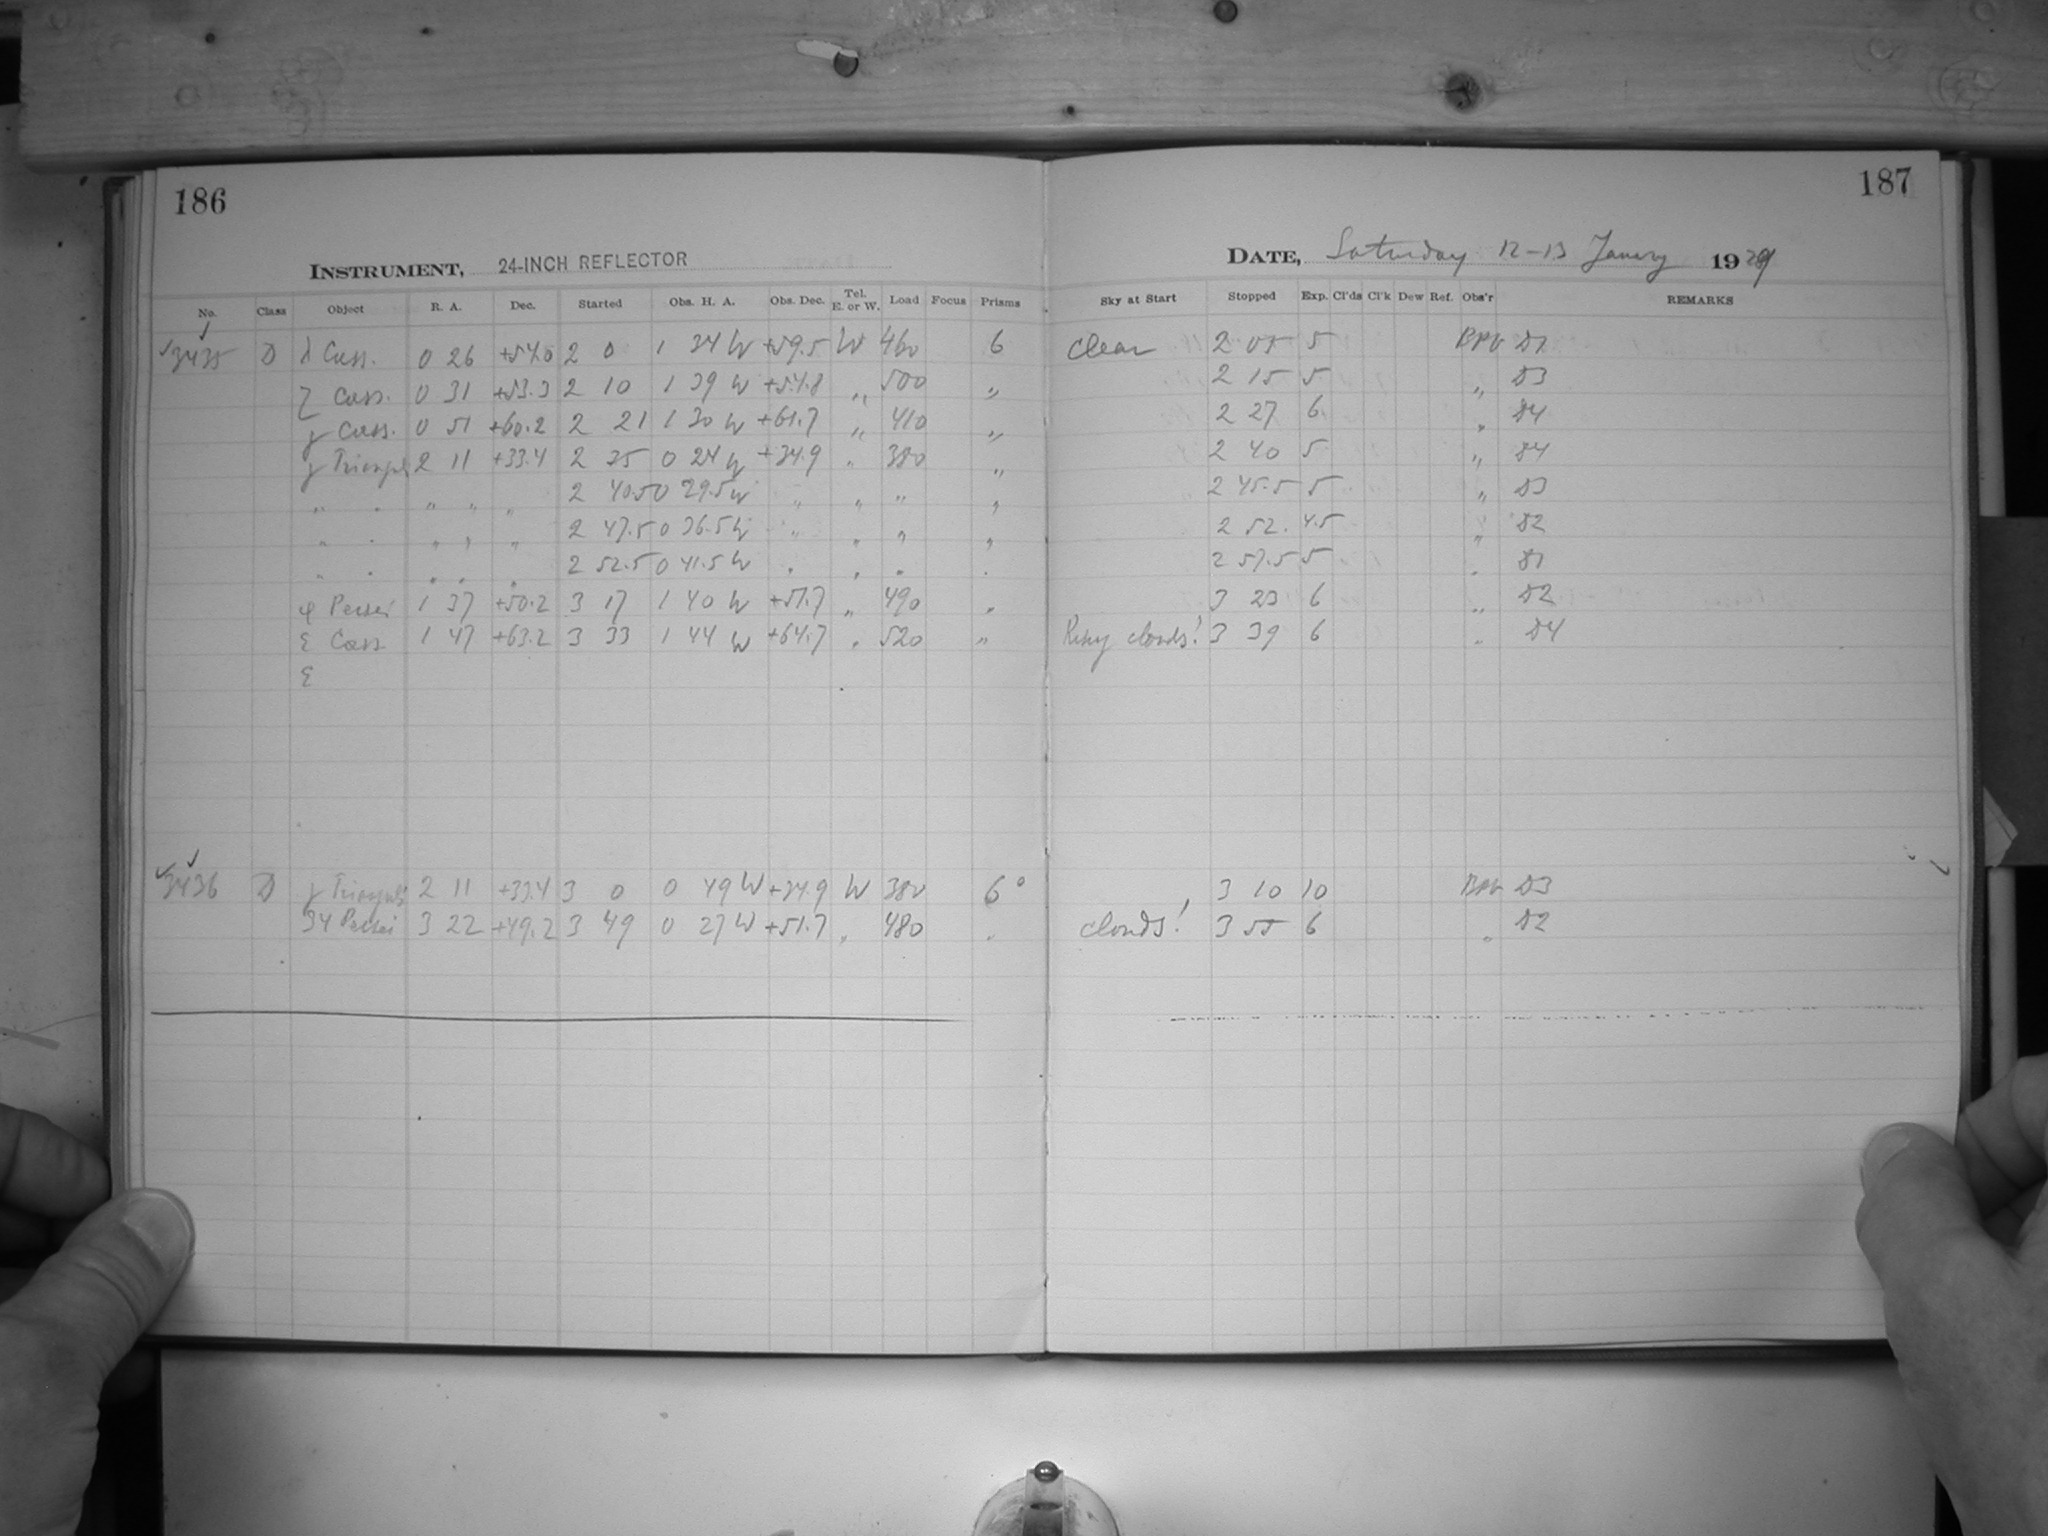 186
187
INSTRUMENT, 24-INCH REFLECTOR
DATE, Saturday 12-13 January 1929
No. Class Object R. A. Dec. Started Obs. H. A. Obs. Dec. Tel. E. or W. Load Focus Prisms Sky at Start Stopped Exp. Cl'ds Cl'k Dew Ref. Obs'r REMARKS
3435 D λ Cass. 0 26 +54.0 2 0 1 34 W +59.5 W 460 6 clear 2 05 5
ζ Cass. 0 31 +53.3 2 10 1 39 W +54.8 " 500 " 2 15 5 " D3
γ Cass. 0 51 +60.2 2 21 1 30 W +61.7 " 410 " 2 27 6 " D4
γ 2 11 +33.4 2 35 0 24 W +34.9 " 380 " 2 40 5 " D4
" " " " " 2 40.5 0 29.5 W " " " " 2 45.5 5 " D3
" " " " " 2 47.5 0 36.5 W " " " " 2 52. 4.5 " D2
" " " " " 2 52.5 0 41.5 W " " " " 2 57.5 5 " D1
φ Persei 1 37 +50.2 3 17 1 40 W +51.7 " 490 " 3 23 6 " D2
ε Cass 1 47 +63.2 3 33 1 44 W +64.7 " 520 " clouds! 3 39 6 " D4
ε
3436 D γ 2 11 +33.4 3 0 0 49 W +34.9 W 380 6° 3 10 10 D3
34 Persei 3 22 +49.2 3 49 0 27 W +51.7 " 480 " clouds! 3 55 6 " D2